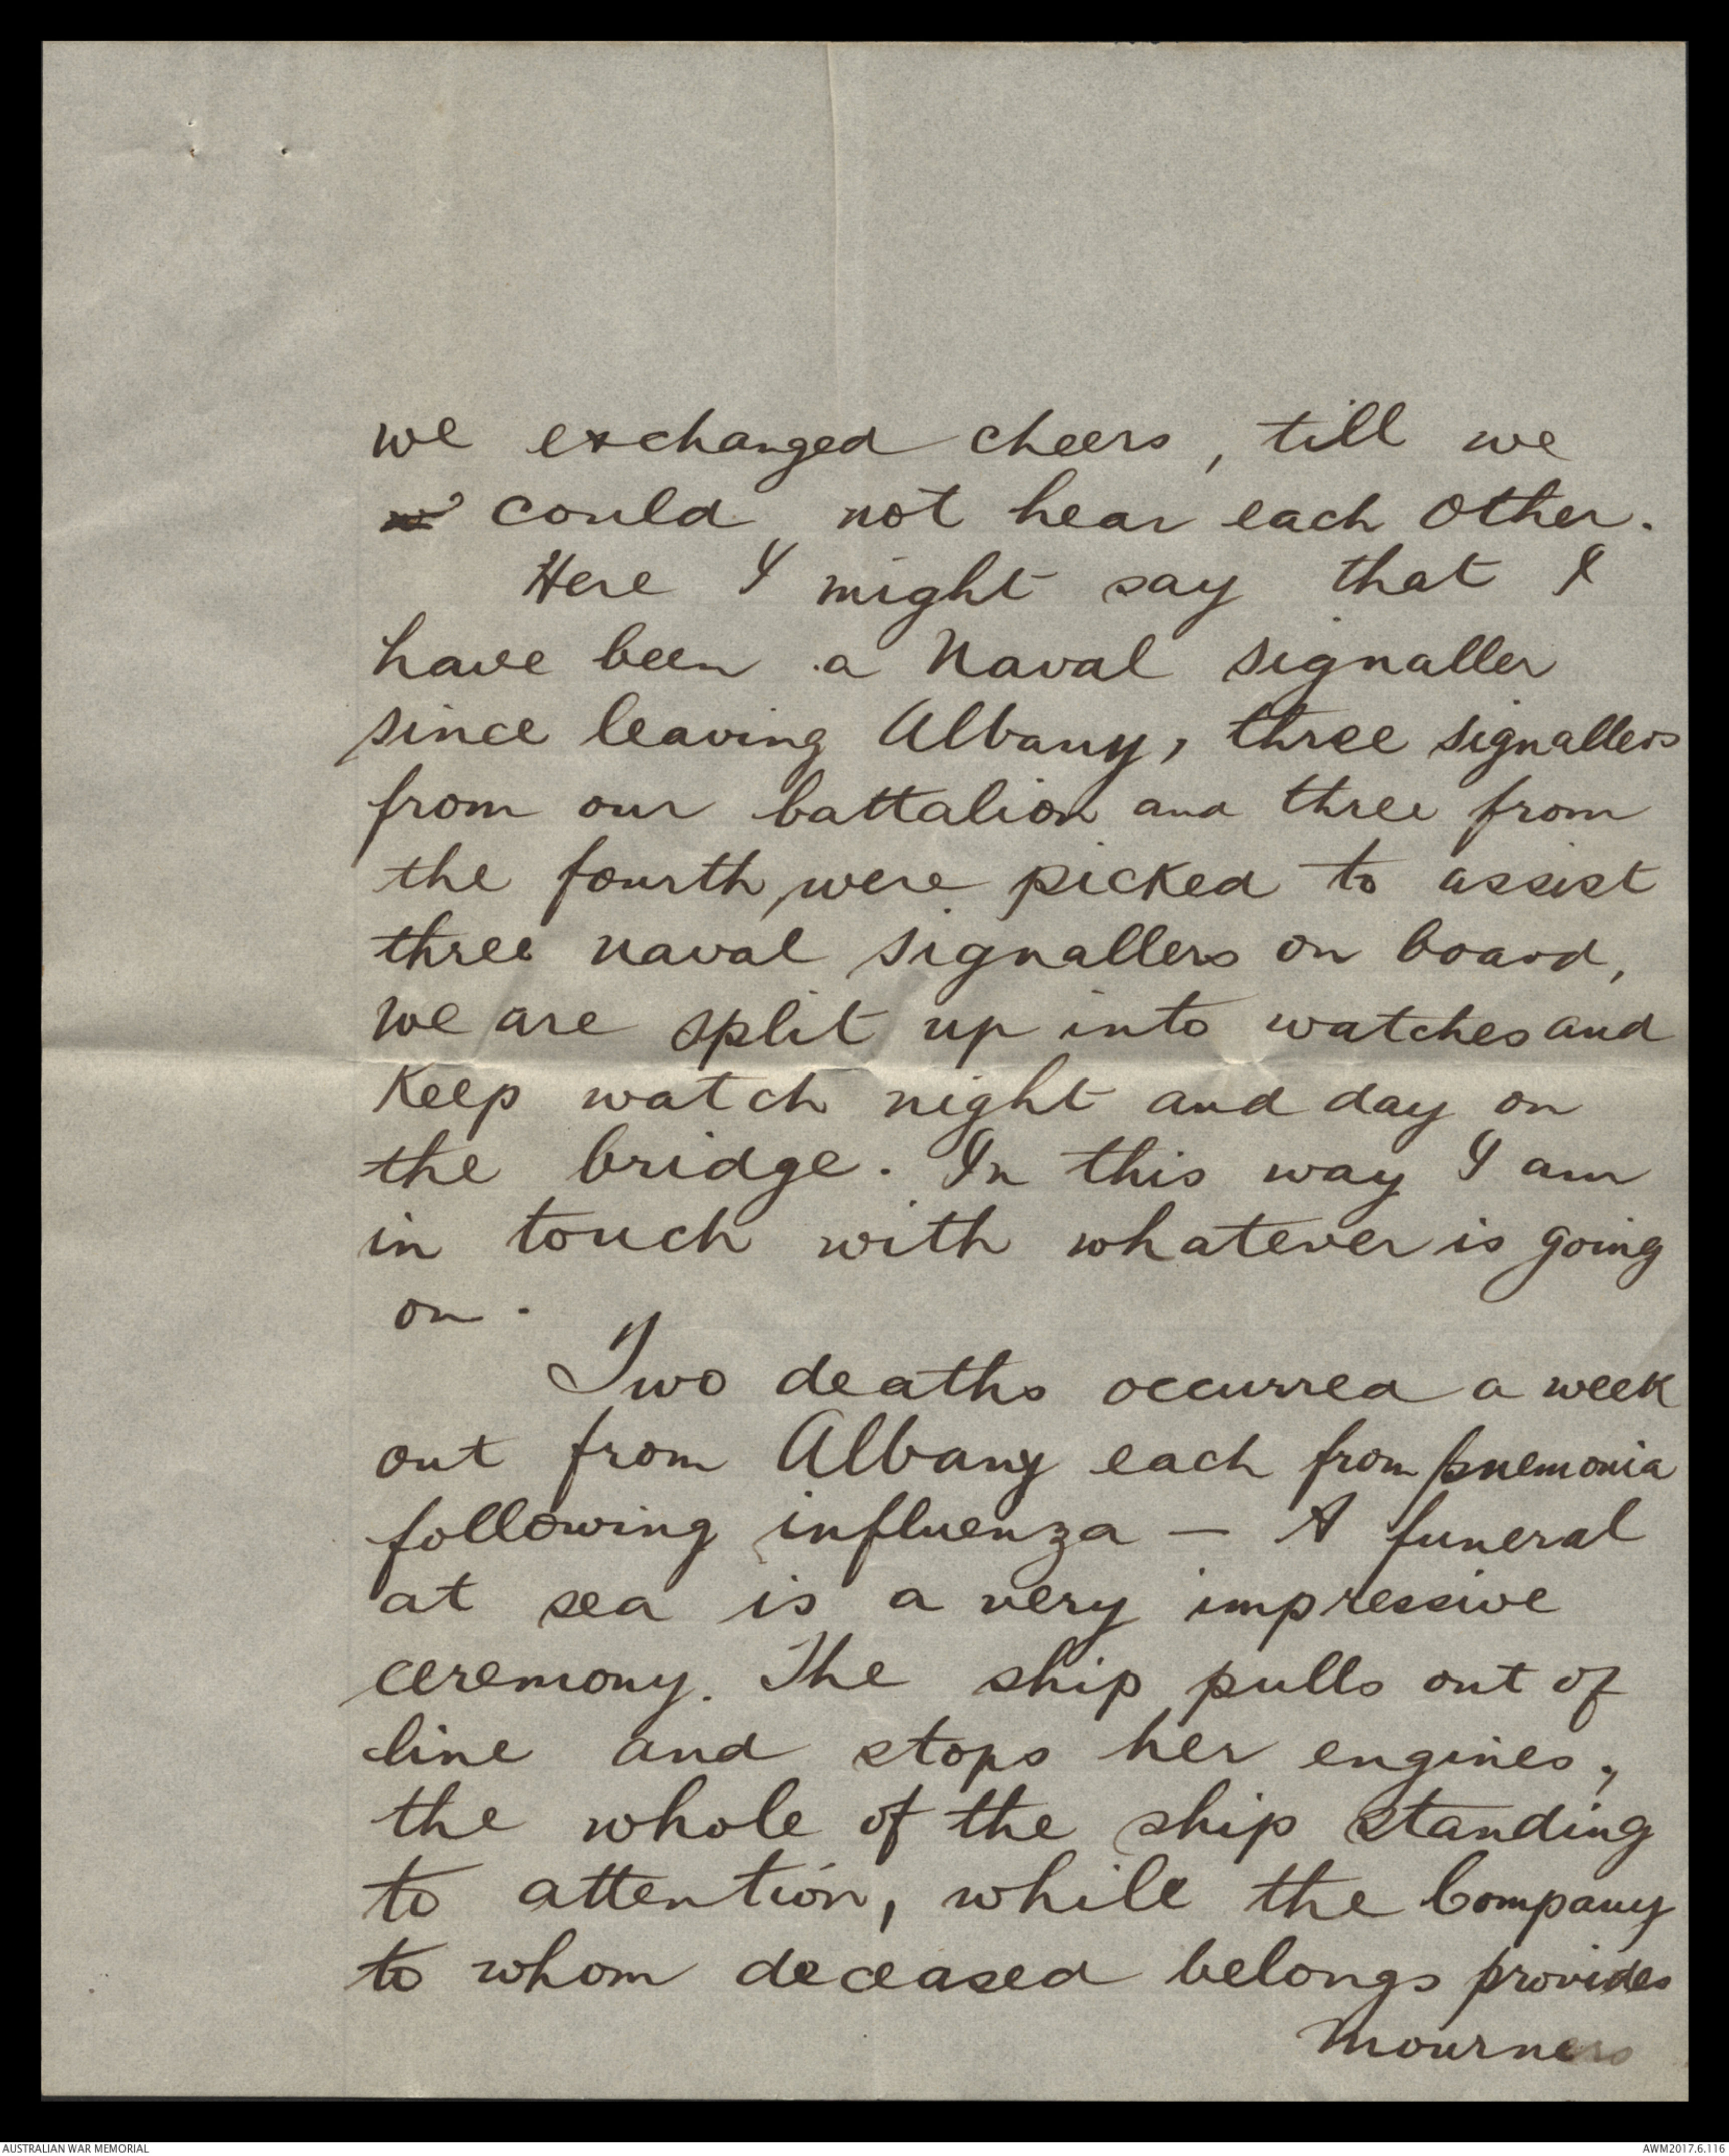 we exchanged cheers, till we
could not hear each other.
Here I might say that I
have been a Naval signaller
since leaving Albany, three signallers
from our battalion and three from
the fourth, were picked to assist
three naval signallers on board,
we are split up into watches and
keep watch night and day on
the bridge. In this way I am
in touch with whatever is going
on.
Two deaths occurred a week
out from Albany each from pnemonia
following influenza — A funeral
at sea is a very impressive
ceremony. The ship pulls out of
line and stops her engines,
the whole of the ship standing
to attention, while the Company
to whom deceased belongs provides
mourners
AUSTRALIAN WAR MEMORIAL
AWM2017.6.116